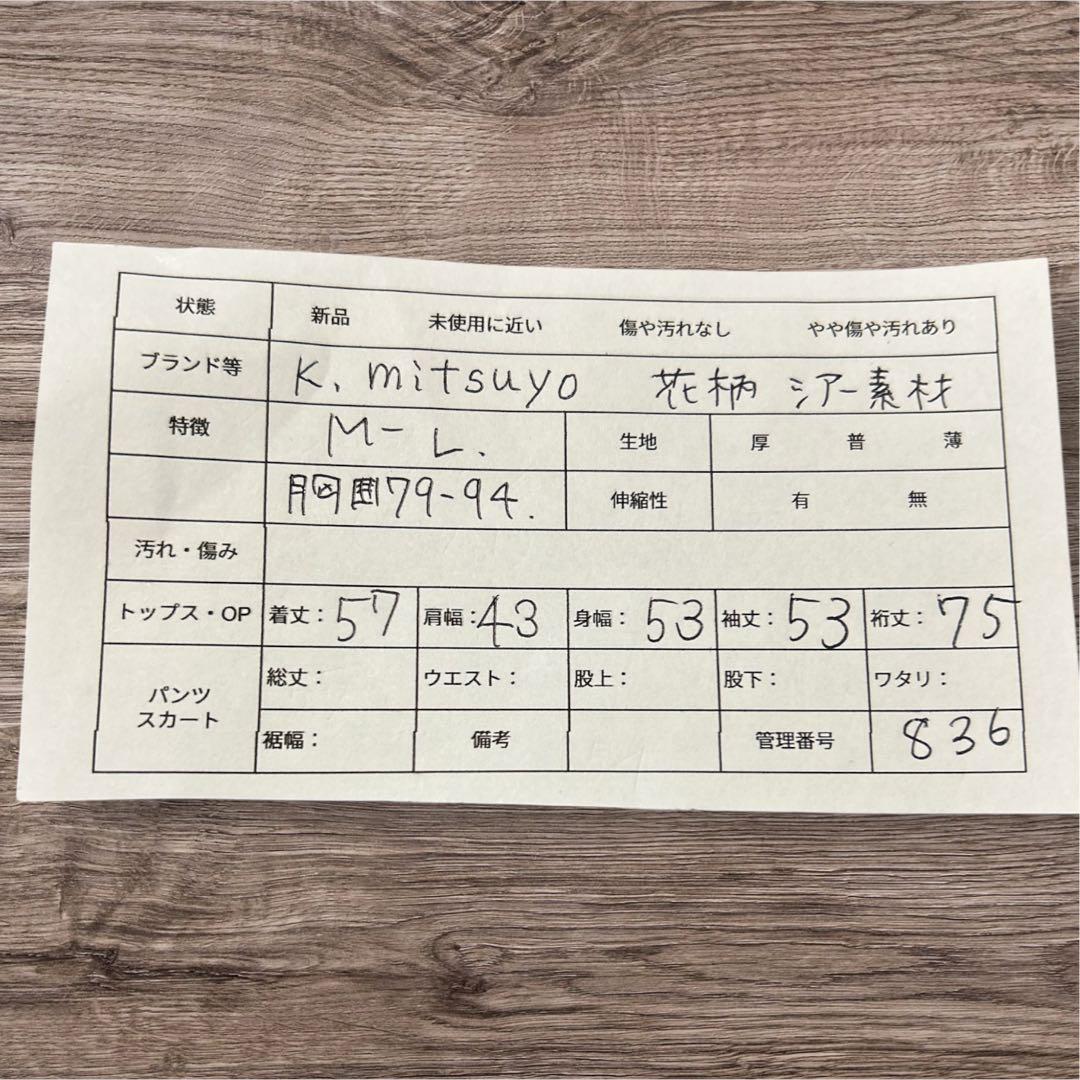 状態 新品 未使用に近い 傷や汚れなし やや傷や汚れあり
ブランド等 K. mitsuyo 花柄 シアー素材
特徴 M-L. 生地 厚 普 薄
胸囲79-94. 伸縮性 有 無
汚れ・傷み
トップス・OP 着丈：57 肩幅：43 身幅：53 袖丈：53 裄丈：75
パンツ スカート 総丈： ウエスト： 股上： 股下： ワタリ：
裾幅： 備考 管理番号 836